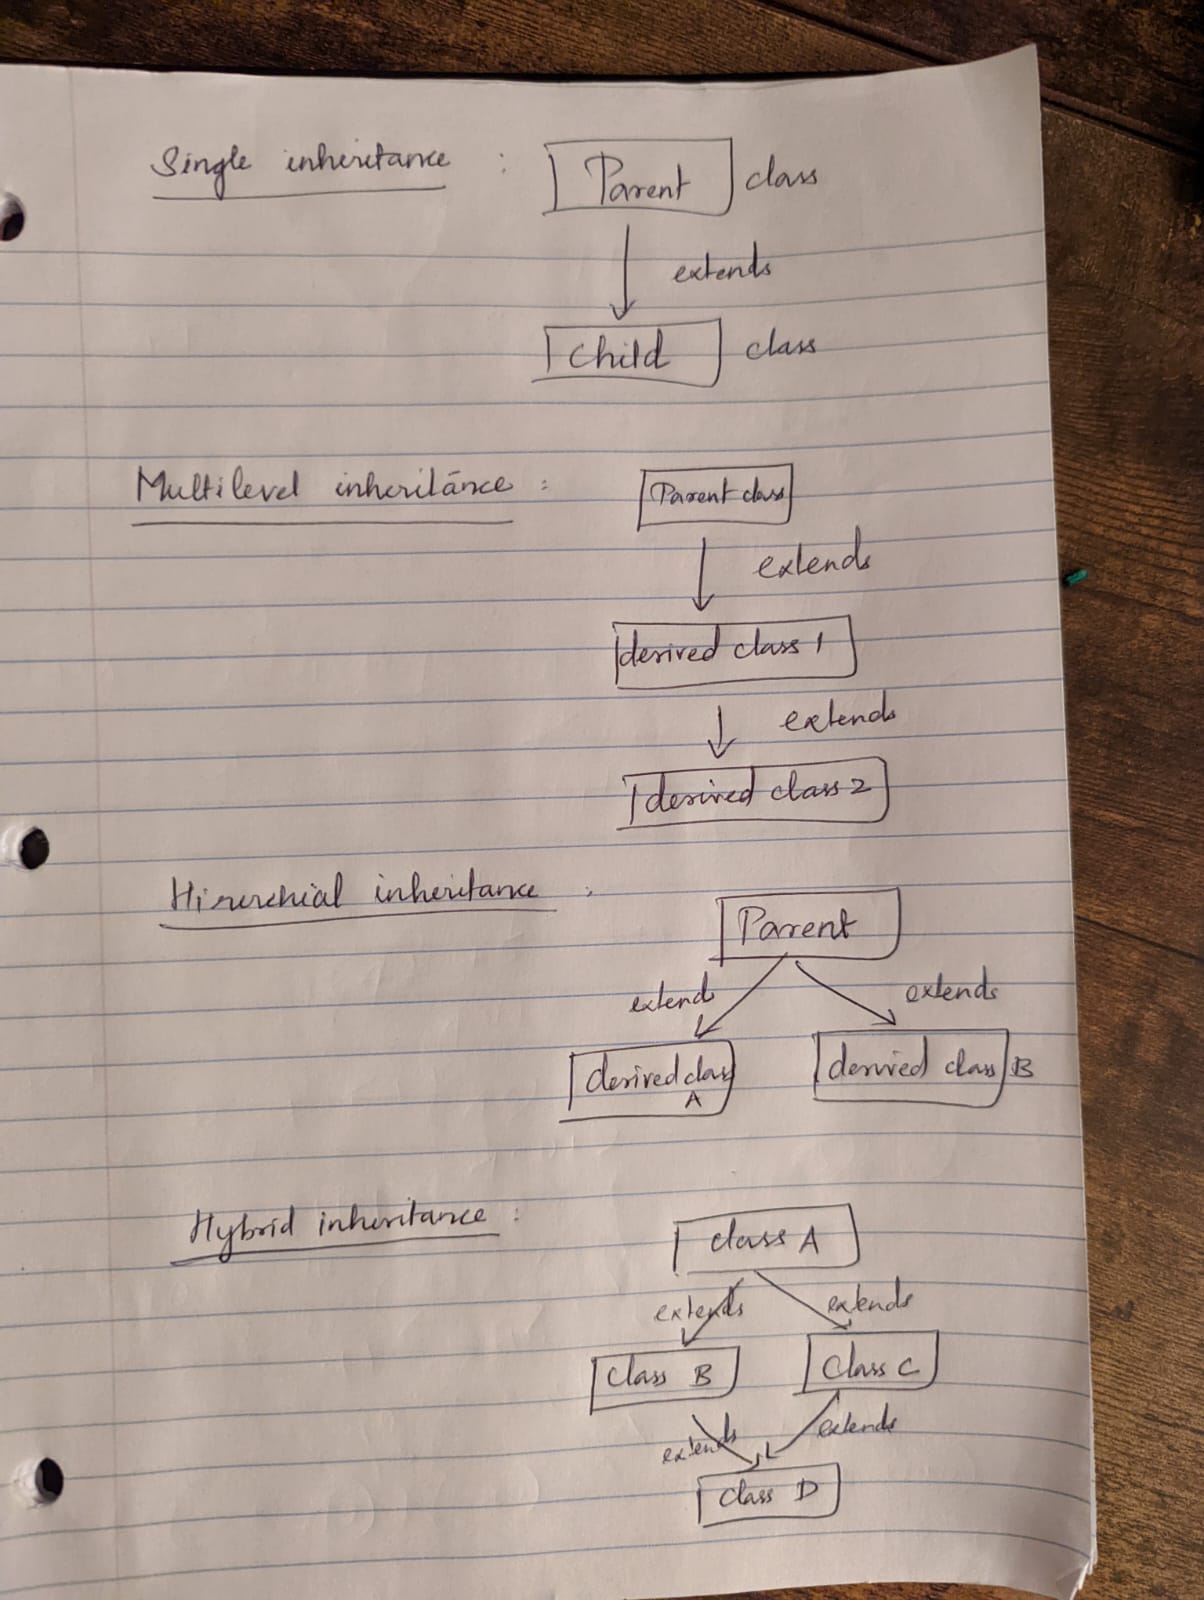 Single inheritance : Parent class
extends
Child class
Multilevel inheritance : Parent class
extends
derived class 1
extends
derived class 2
Hirerchial inheritance : Parent
extend extends
derived class A derived class B
Hybrid inheritance : class A
extends extends
Class B Class C
extends extends
Class D